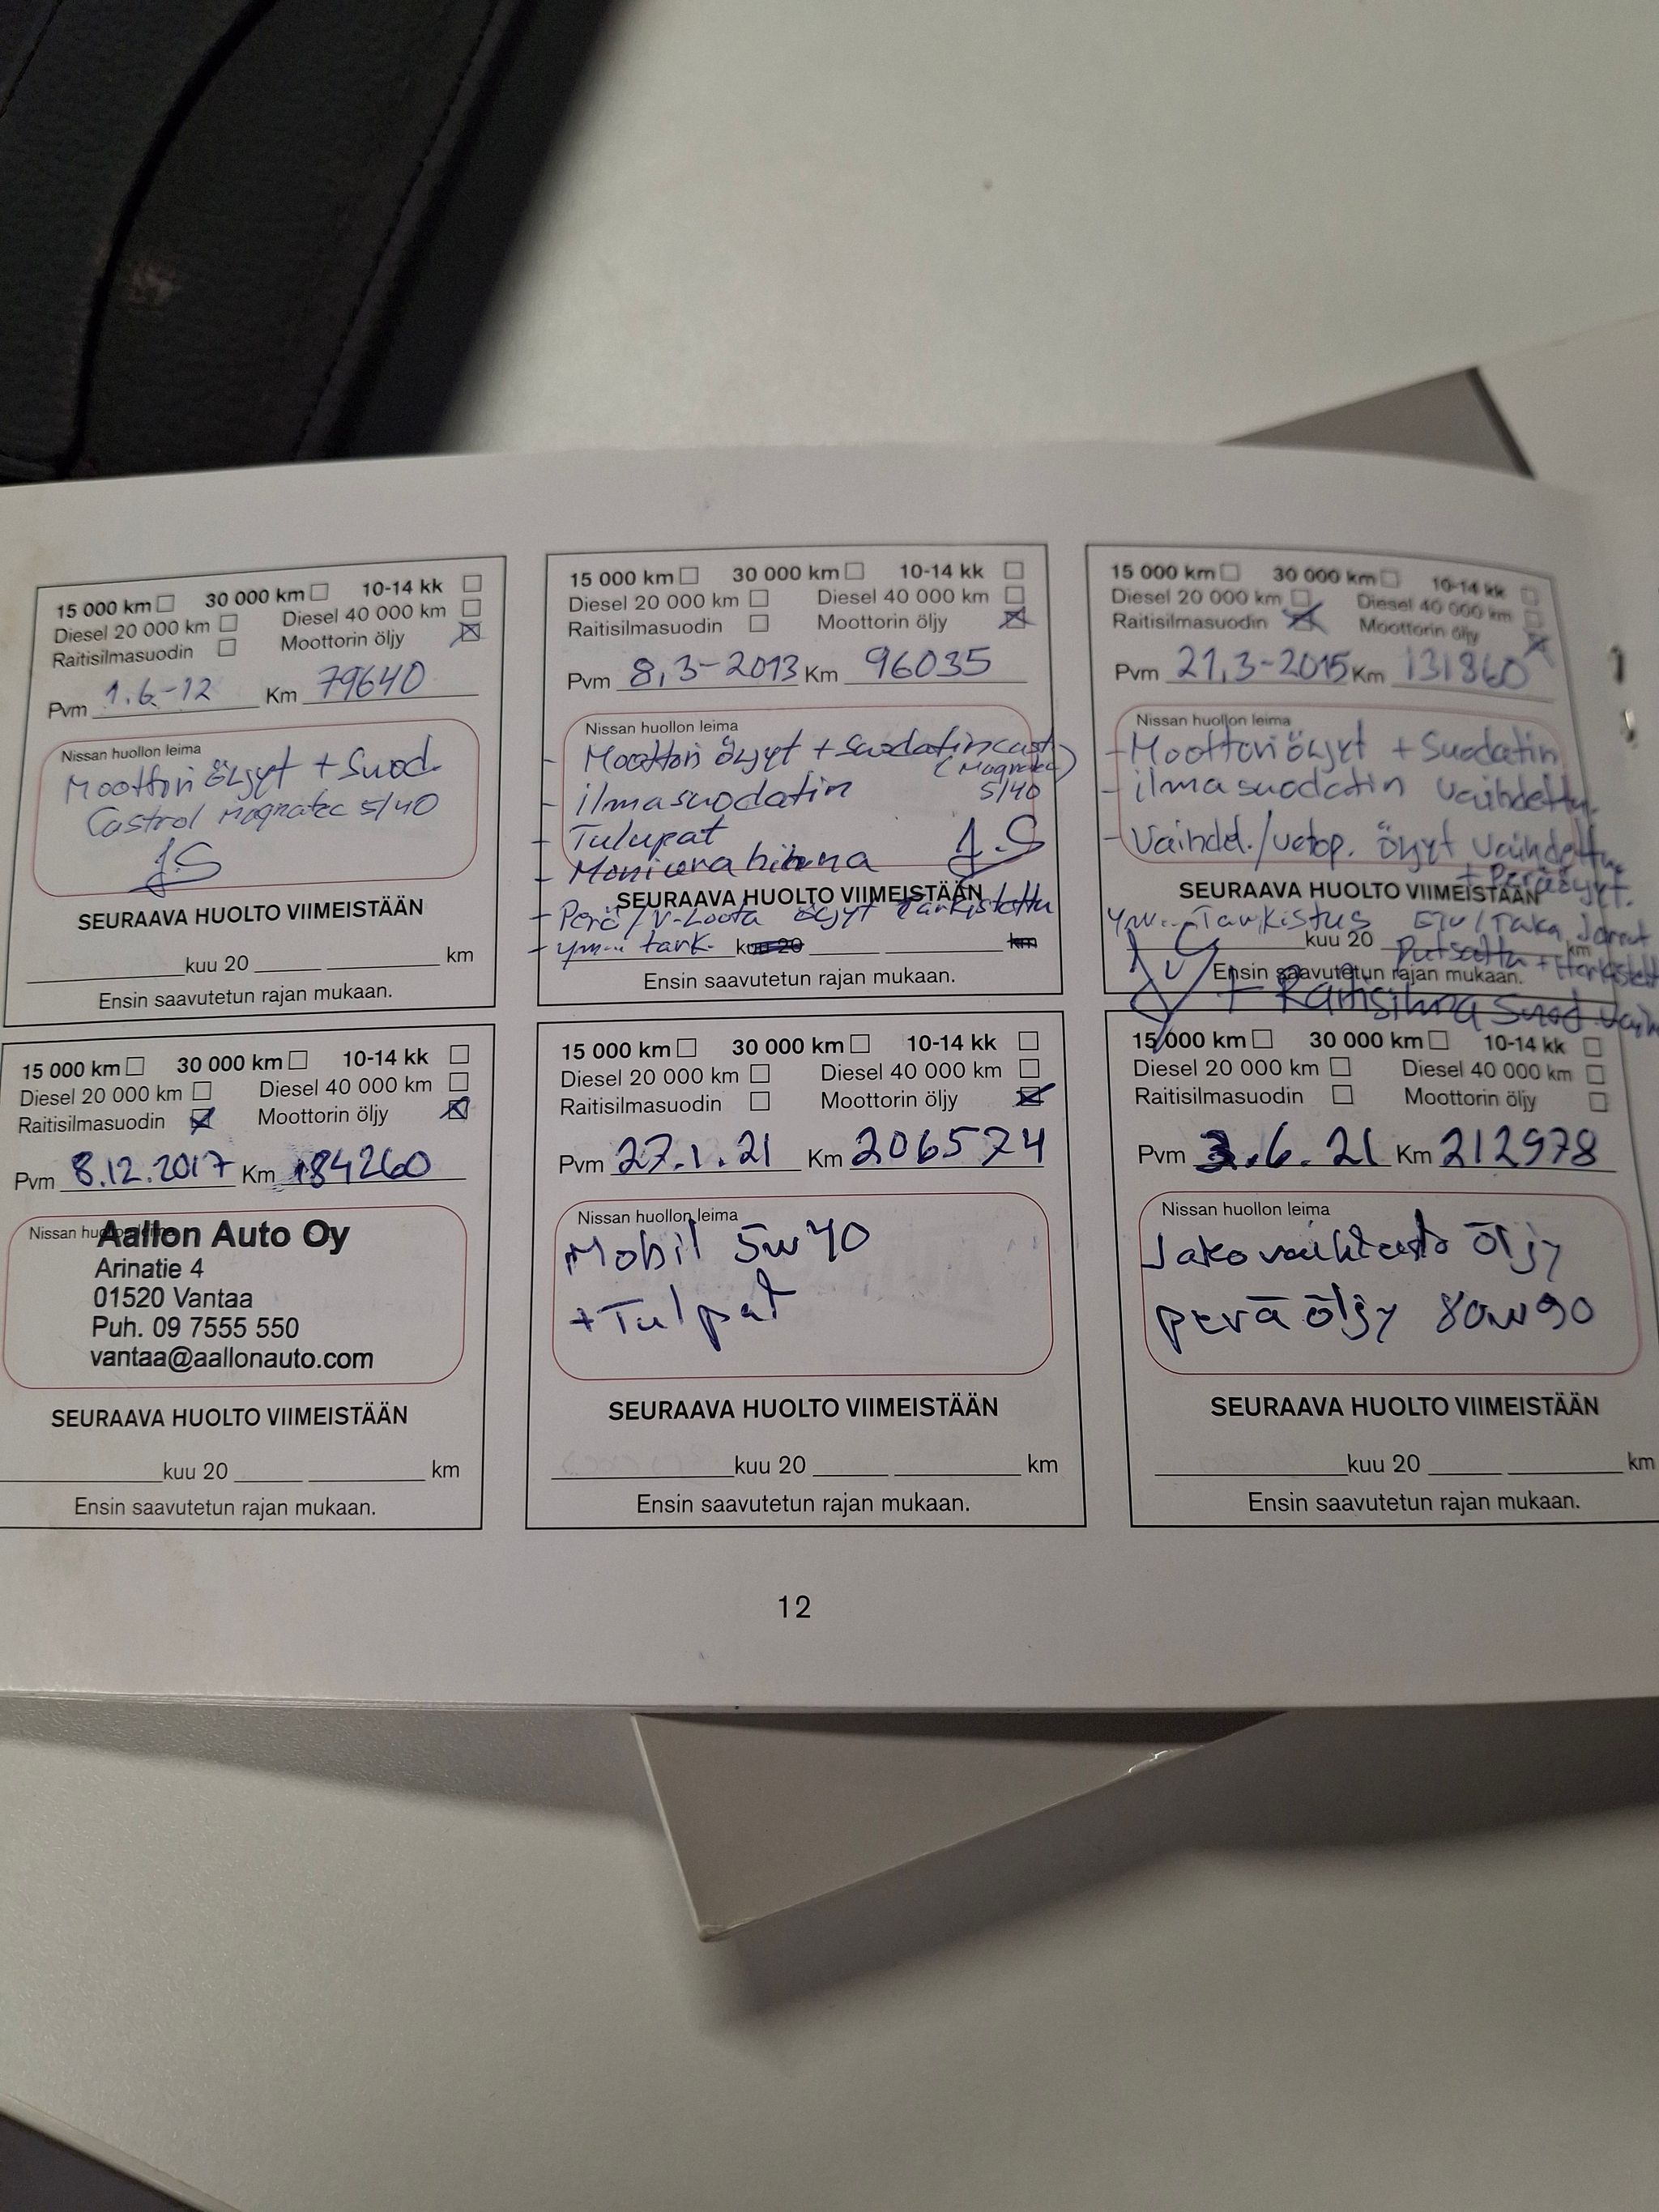 15 000 km 30 000 km 10-14 kk
Diesel 20 000 km Diesel 40 000 km
Raitisilmasuodin Moottorin öljy
Pvm 1.6-12 Km 79640
Nissan huollon leima
Moottori öljyt + Suod.
Castrol Magnatec 5/40
J.S
SEURAAVA HUOLTO VIIMEISTÄÄN
kuu 20 km
Ensin saavutetun rajan mukaan.
15 000 km 30 000 km 10-14 kk
Diesel 20 000 km Diesel 40 000 km
Raitisilmasuodin Moottorin öljy
Pvm 8,3-2013 Km 96035
Nissan huollon leima
- Moottori öljyt + suodatin cast.
(Magnatec)
- ilmasuodatin 5/40
- Tulupat J.S
- Moniurahihna
SEURAAVA HUOLTO VIIMEISTÄÄN
- Perä/V-Loota öljyt Tarkistettu
- ym... tark. kuu 20 km
Ensin saavutetun rajan mukaan.
15 000 km 30 000 km 10-14 kk
Diesel 20 000 km Diesel 40 000 km
Raitisilmasuodin Moottorin öljy
Pvm 21,3-2015 Km 131860
Nissan huollon leima
- Moottoriöljyt + Suodatin
- ilmasuodatin vaihdettu.
- Vaihdel./vetop. öljyt vaihdettu
+ Peräöljyt.
SEURAAVA HUOLTO VIIMEISTÄÄN
ym... Tarkistus Etu/Taka Jarrut
kuu 20 km
Putsattu + tarkistettu
Ensin saavutetun rajan mukaan.
+ Raitisilma Suod.
15 000 km 30 000 km 10-14 kk
Diesel 20 000 km Diesel 40 000 km
Raitisilmasuodin Moottorin öljy
Pvm 8.12.2017 Km 184260
Nissan huollon leima
Aallon Auto Oy
Arinatie 4
01520 Vantaa
Puh. 09 7555 550
vantaa@aallonauto.com
SEURAAVA HUOLTO VIIMEISTÄÄN
kuu 20 km
Ensin saavutetun rajan mukaan.
15 000 km 30 000 km 10-14 kk
Diesel 20 000 km Diesel 40 000 km
Raitisilmasuodin Moottorin öljy
Pvm 27.1.21 Km 206574
Nissan huollon leima
Mobil 5w40
+Tulpat
SEURAAVA HUOLTO VIIMEISTÄÄN
kuu 20 km
Ensin saavutetun rajan mukaan.
15 000 km 30 000 km 10-14 kk
Diesel 20 000 km Diesel 40 000 km
Raitisilmasuodin Moottorin öljy
Pvm 3.6.21 Km 212978
Nissan huollon leima
öljy
perä öljy 80w90
SEURAAVA HUOLTO VIIMEISTÄÄN
kuu 20 km
Ensin saavutetun rajan mukaan.
12